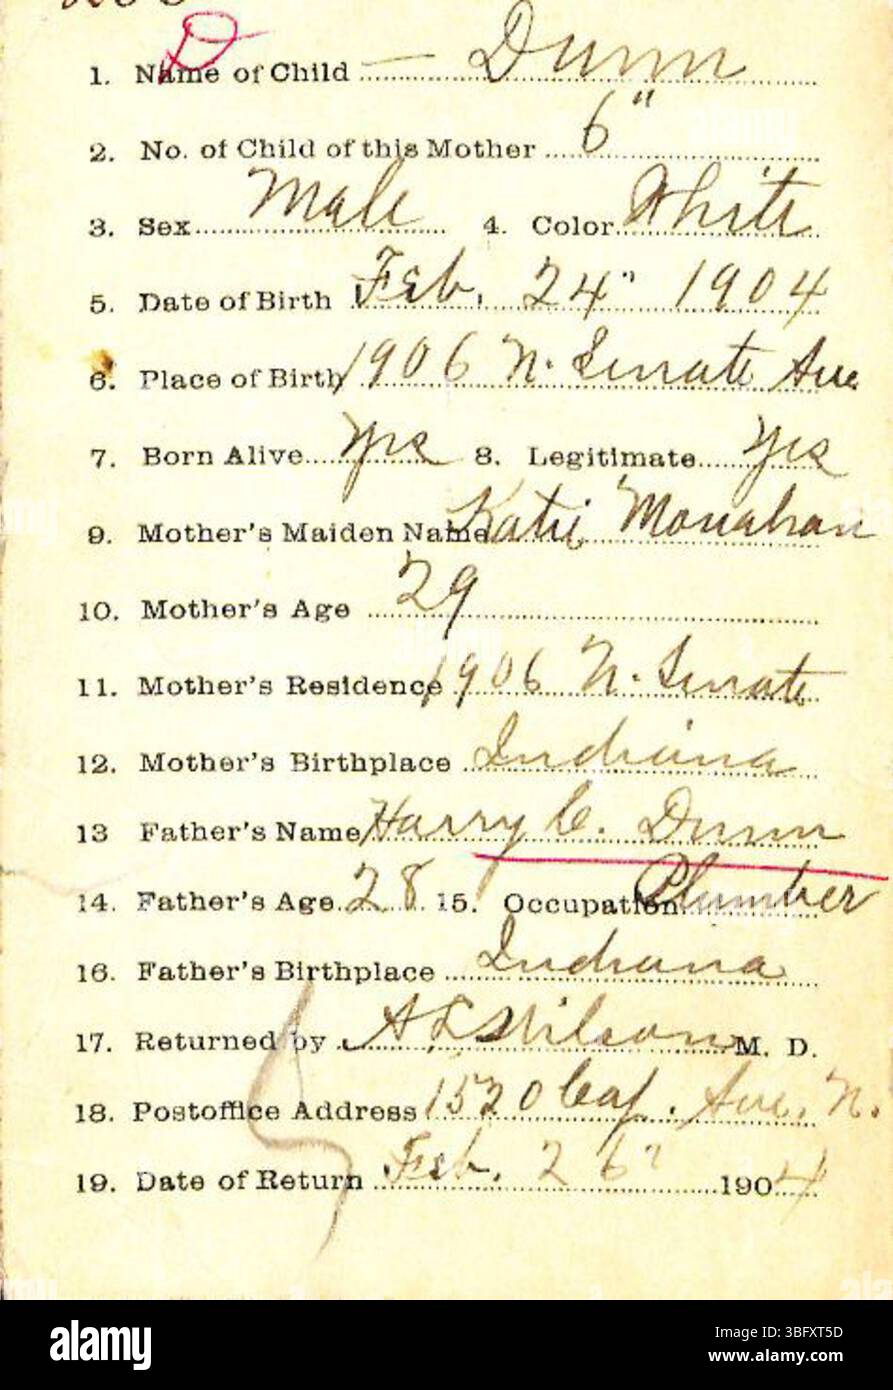 D
1. Name of Child — Dunn
2. No. of Child of this Mother 6"
3. Sex Male 4. Color White
5. Date of Birth Feb. 24" 1904
6. Place of Birth 1906 N. Senate Ave
7. Born Alive Yes 8. Legitimate Yes
9. Mother's Maiden Name Katie Monahan
10. Mother's Age 29
11. Mother's Residence 1906 N. Senate
12. Mother's Birthplace Indiana
13 Father's Name Harry C. Dunn
14. Father's Age 28 15. Occupation Plumber
16. Father's Birthplace Indiana
17. Returned by Wilson M. D.
18. Postoffice Address 1520 Cap. Ave. N.
19. Date of Return Feb. 26" 1904
alamy
Image ID: 3BFXT5D
www.alamy.com